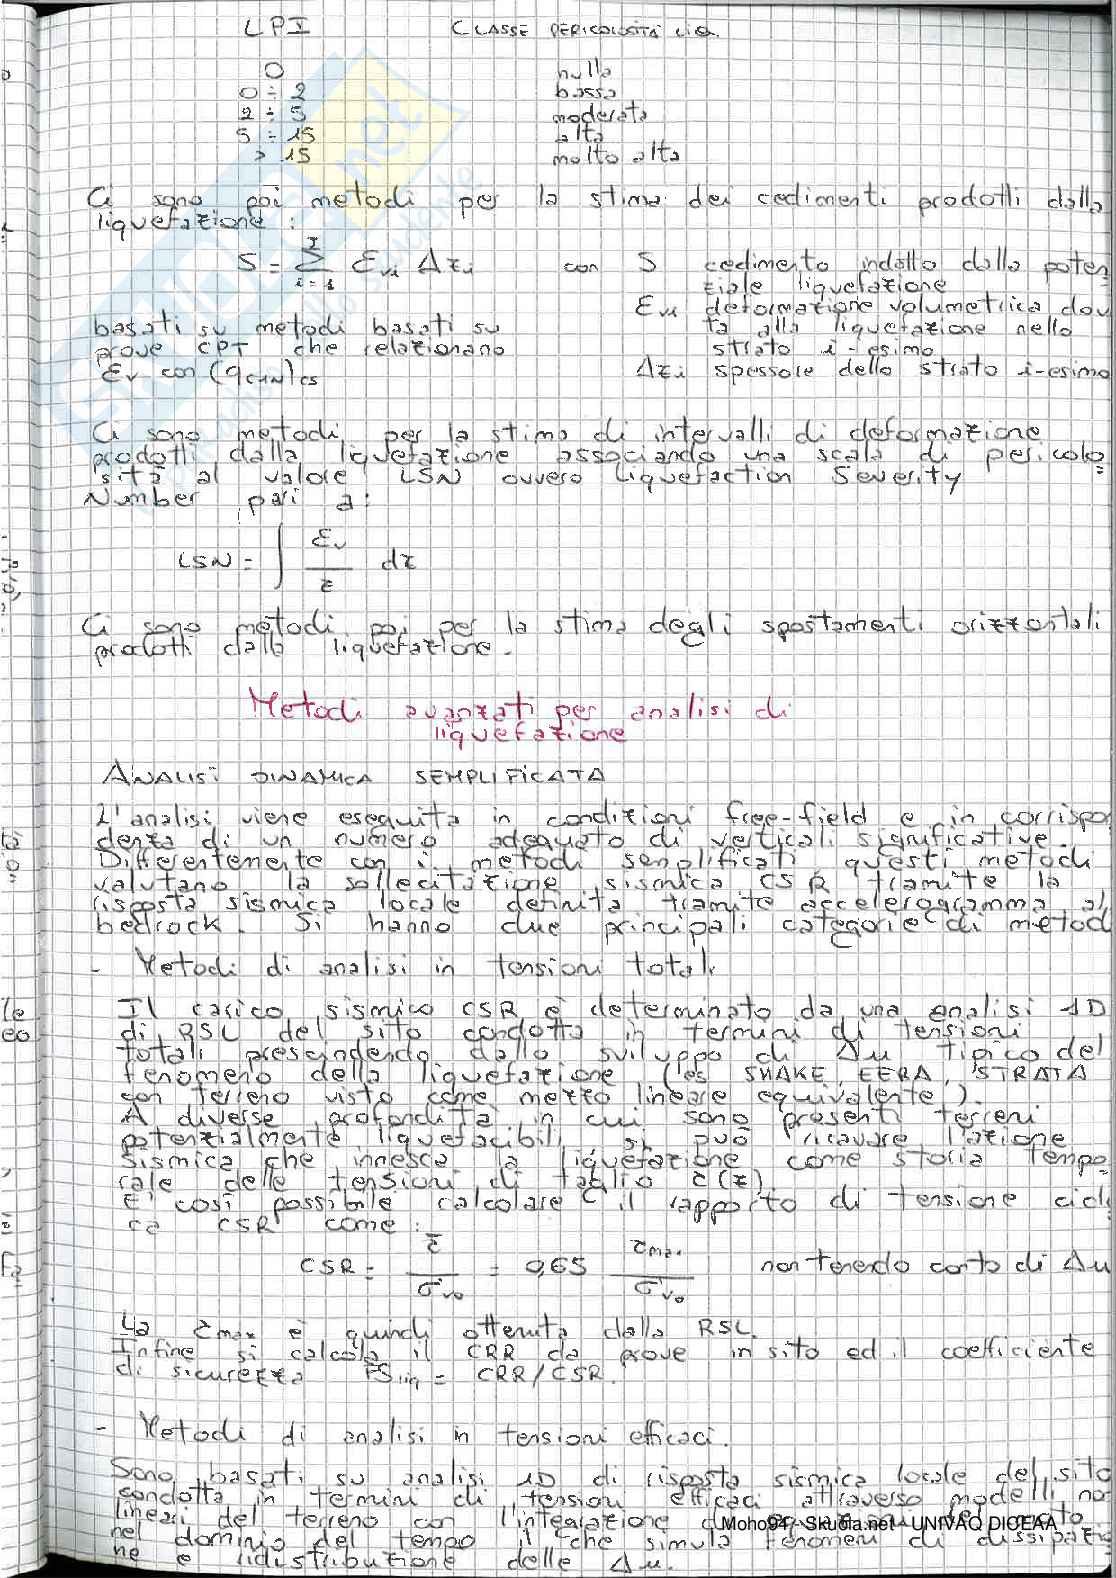 LPI CLASSE PERICOLOSITÀ LIQ.
0 nulla
0 ÷ 2 bassa
2 ÷ 5 moderata
5 ÷ 15 alta
> 15 molto alta
Ci sono poi metodi per la stima dei cedimenti prodotti dalla
liquefazione :
S = Σ εvi Δzi con S cedimento indotto dalla poten-
i=1
ziale liquefazione
εvi deformazione volumetrica dov
basati su metodi basati su
ta alla liquefazione nello
prove CPT che relazionano
strato i-esimo
εv con (qc1N)cs Δzi spessore dello strato i-esimo
Ci sono metodi per la stima di intervalli di deformazione
prodotti dalla liquefazione associando una scala di pericolo-
sità al valore LSN ovvero Liquefaction Severity
Number pari a:
LSN = ∫ εv/z dz
Ci sono metodi poi per la stima degli spostamenti orizzontali
prodotti dalla liquefazione.
Metodi avanzati per analisi di
liquefazione
ANALISI DINAMICA SEMPLIFICATA
L'analisi viene eseguita in condizioni free-field e in corrispon
denza di un numero adeguato di verticali significative.
Differentemente con i metodi semplificati questi metodi
valutano la sollecitazione sismica CSR tramite la
risposta sismica locale definita tramite accelerogramma al
bedrock. Si hanno due principali categorie di metodi
- Metodi di analisi in tensioni totali
Il carico sismico CSR è determinato da una analisi 1D
di RSL del sito condotta in termini di tensioni
totali prescindendo dallo sviluppo di Δu tipico del
fenomeno della liquefazione (es SHAKE, EERA, STRATA
con terreno visto come mezzo lineare equivalente).
A diverse profondità in cui sono presenti terreni
potenzialmente liquefacibili si può ricavare l'azione
sismica che innesca la liquefazione come storia tempo
rale delle tensioni di taglio τ(z)
E' così possibile calcolare il rapporto di tensione cicli
ca CSR come :
CSR = τ/σ'v0 = 0,65 τmax/σ'v0 non tenendo conto di Δu
La τmax è quindi ottenuta dalla RSL.
Infine si calcola il CRR da prove in sito ed il coefficiente
di sicurezza FSliq = CRR/CSR.
- Metodi di analisi in tensioni efficaci.
Sono basati su analisi 1D di risposta sismica locale del sito
condotta in termini di tensioni efficaci attraverso modelli no
lineari del terreno con l'integrazione
Moho94 - Skuola.net UNIVAQ DICEAA
nel dominio del tempo il che simula fenomeni di dissipazio
ne e ridistribuzione delle Δu.